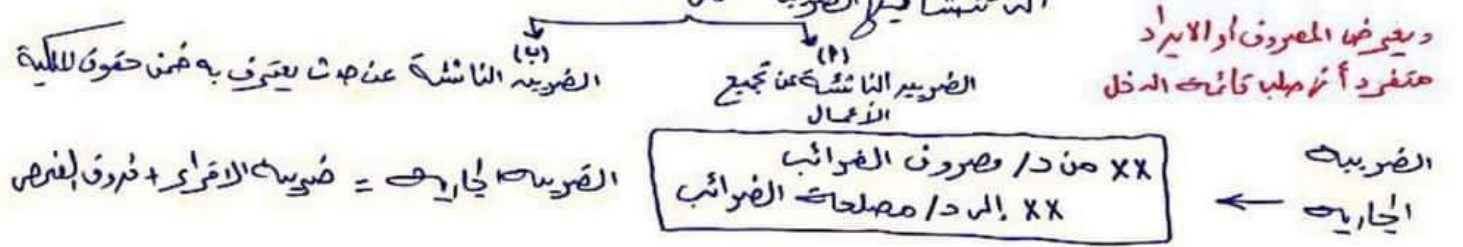 التى تنشأ فيها الضريبة
ويعرض المصروف أو الايراد
منفرداً فى صلب قائمة الدخل
(أ)
الضريبه الناتئة عن تجميع
الأعمال
(ب)
الضريبه الناتئة عن حدث يعترف به ضمن حقوق الملكية
الضريبه
الجاريه ←
XX من د/ مصروف الضرائب
XX إلى د/ مصلحة الضرائب
الضريبه الجاريه = ضريبه الاقرار + فروق الفحص